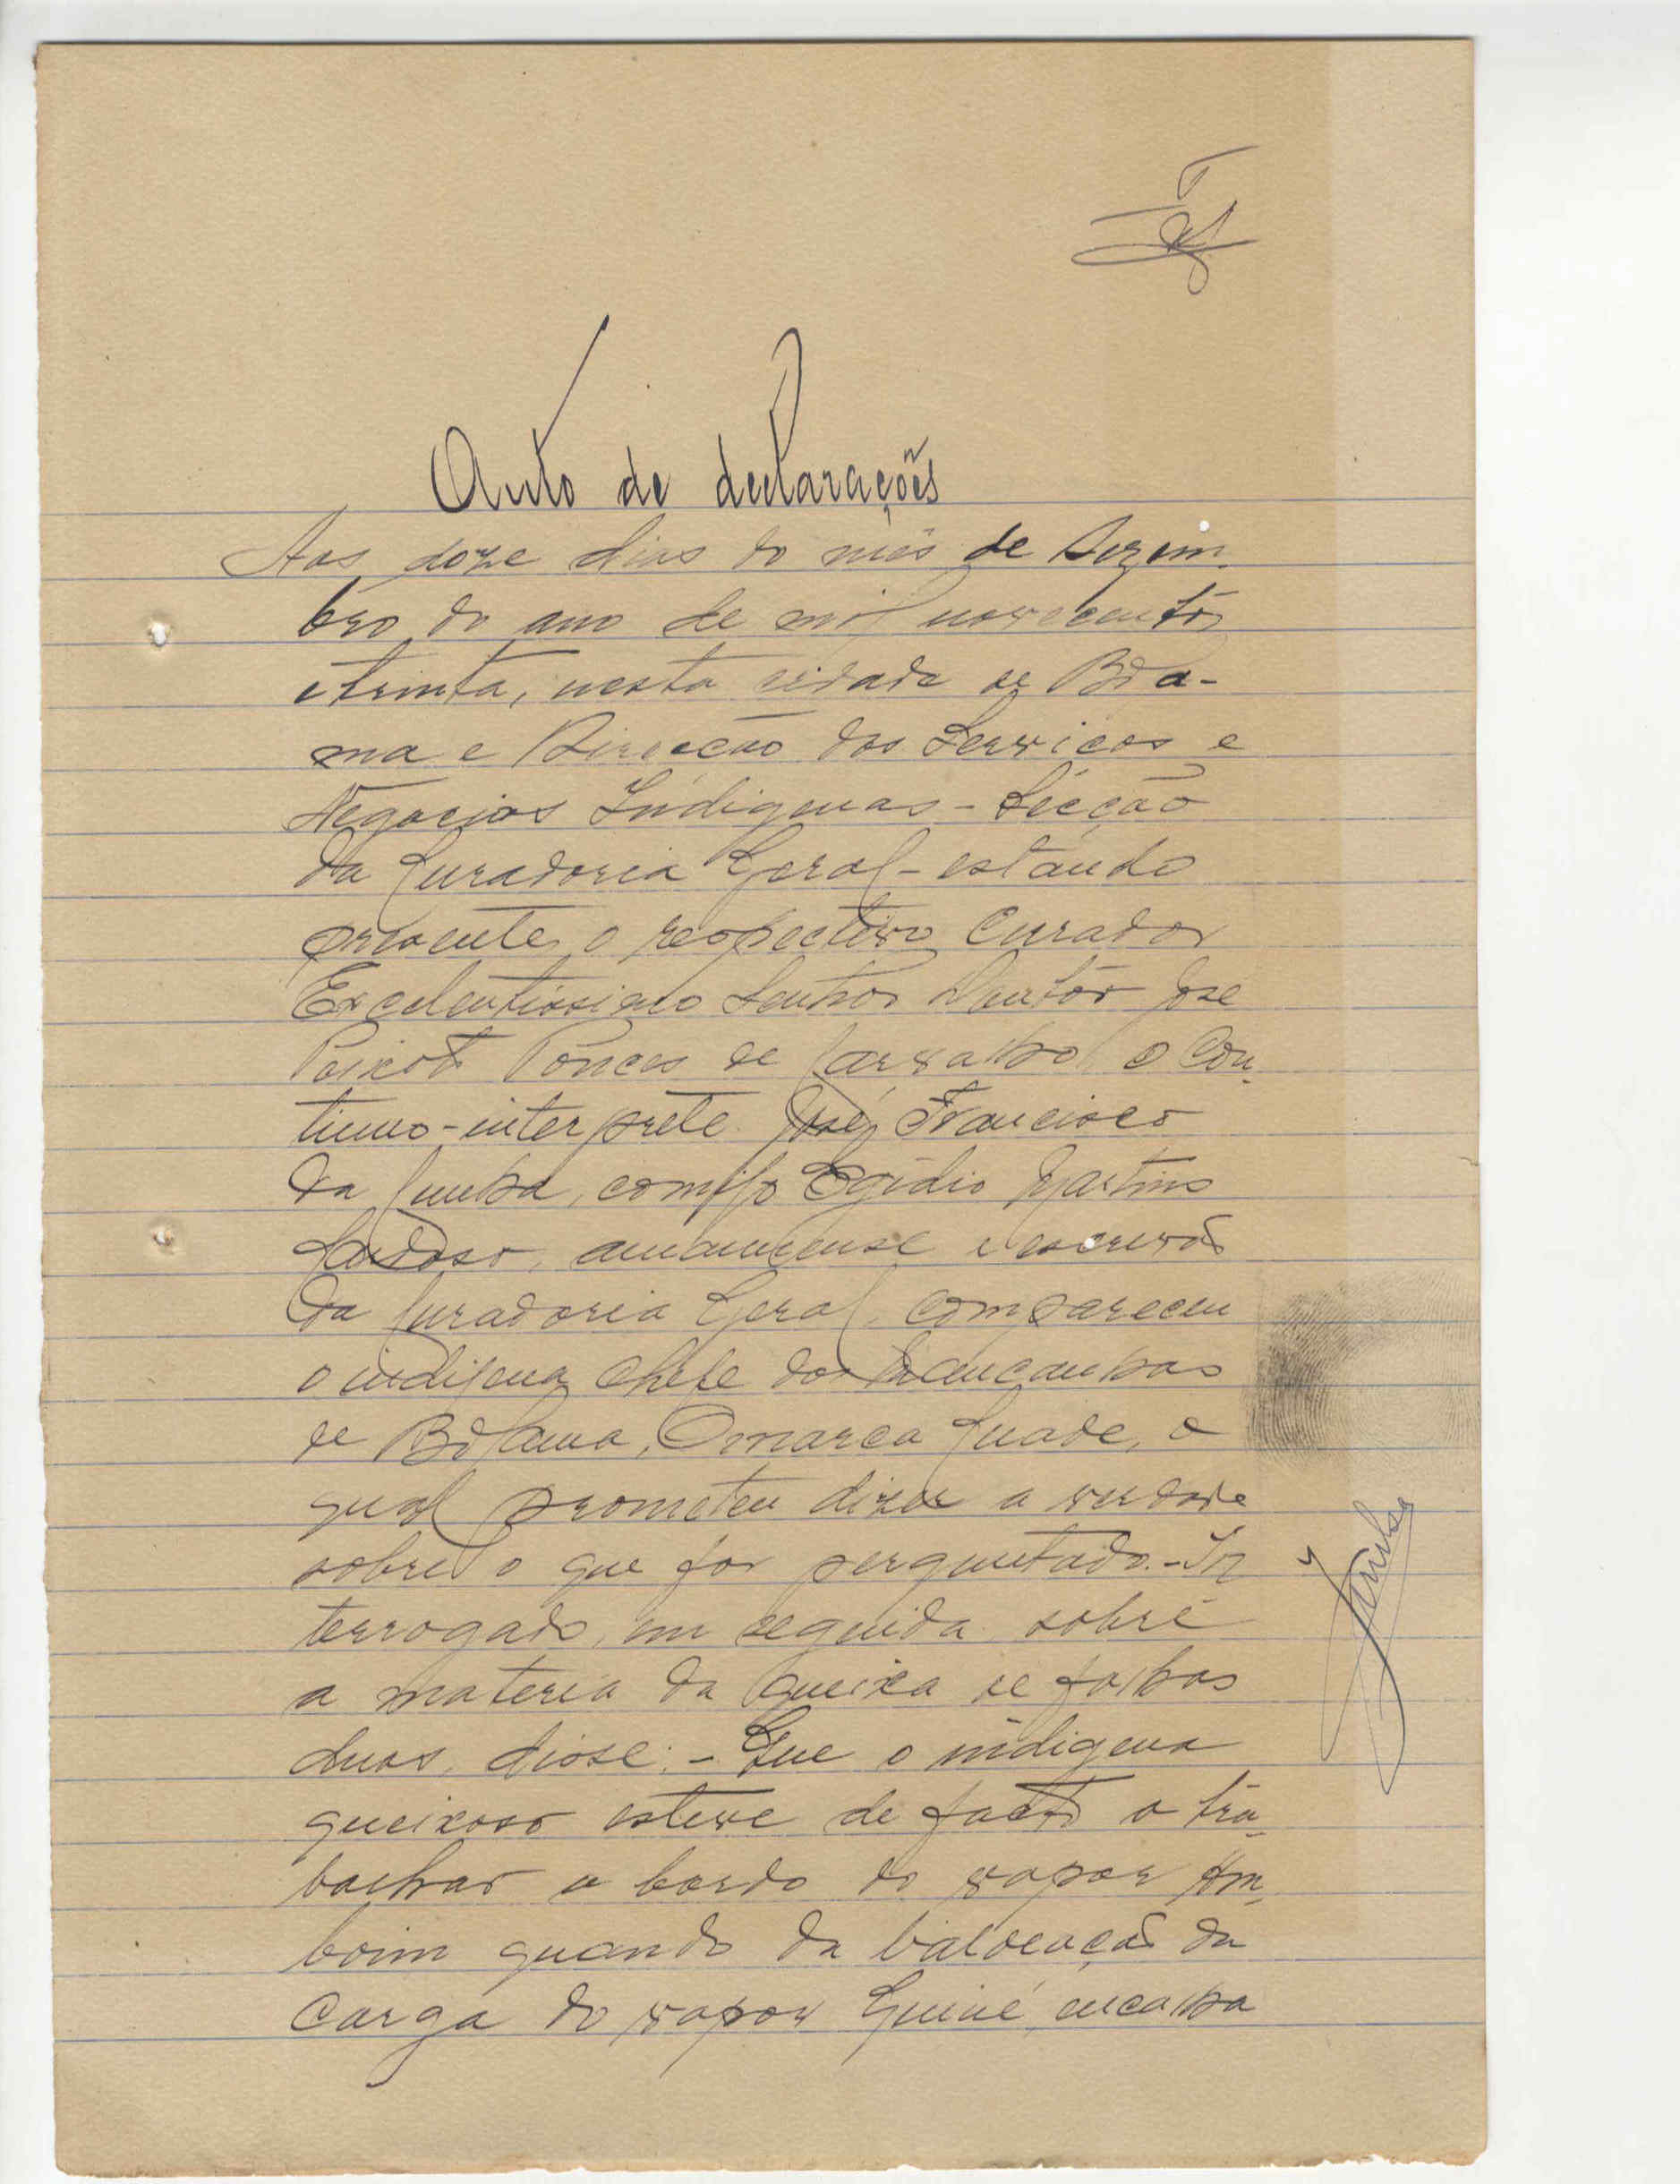 Auto de declarações
Aos doze dias do mês de Dezem-
bro do ano de mil novecentos
e trinta, nesta cidade de Bola-
ma e Direcção dos Serviços e
Negocios Indigenas - Secção
da Curadoria Geral - estando
presente o respectivo Curador
Excelentissimo Senhor Doutor José
Peixoto Ponces de Carvalho, o Con-
tinuo-interprete José Francisco
da Cunha, comigo Egidio Martins
Cardoso, amanuense e escrivão
da Curadoria Geral, compareceu
o indigena chefe dos Mancanhas
de Bolama, Omarca Quade, o
qual prometeu dizer a verdade
sobre o que for perguntado. - In
terrogado, em seguida sobre
a materia da queixa de folhas
duas, disse: - Que o indigena
queixoso esteve de facto a tra-
balhar a bordo do vapor Am-
boim quando da baldeação da
carga do vapor Guiné, encalha